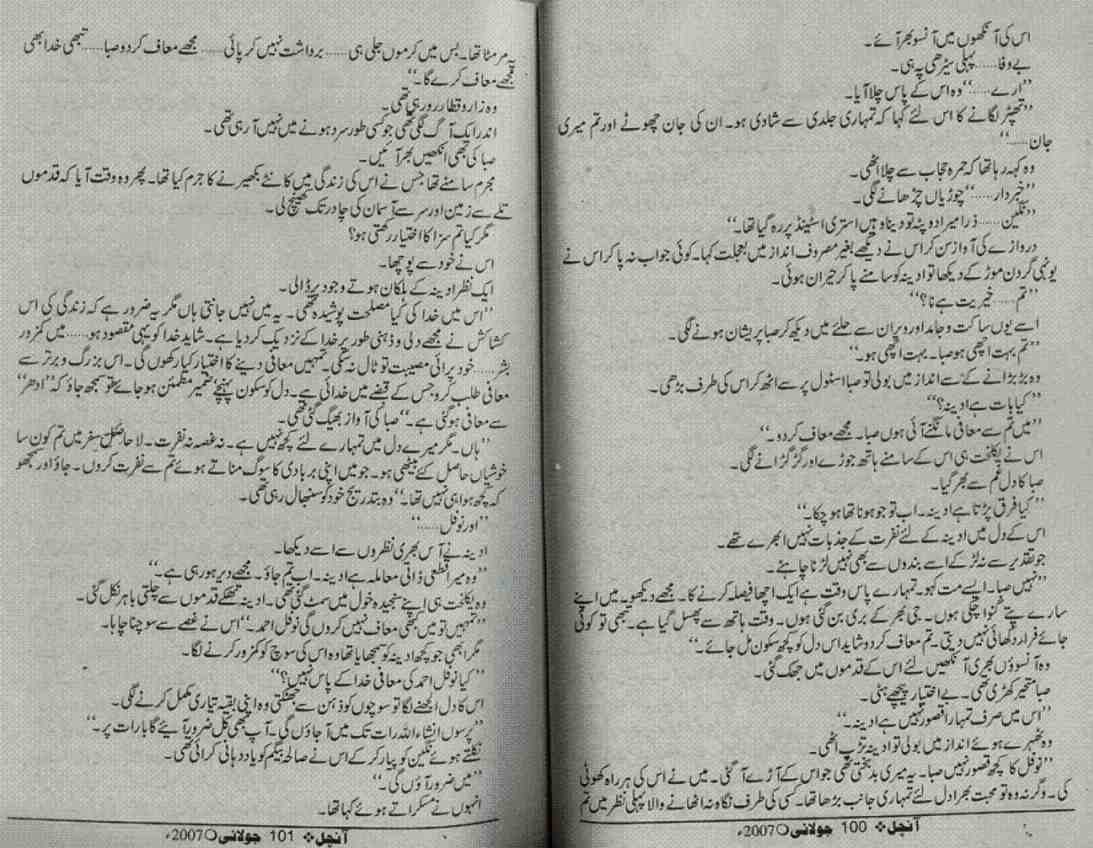 اس کی آنکھوں میں آنسو بھر آئے۔
بے وفا...... پہلی سیڑھی پہ ہی۔
”ارے......“ وہ اس کے پاس چلا آیا۔
”تھپڑ لگانے کا اس لئے کہا کہ تمہاری جلدی سے شادی ہو۔ ان کی جان چھوٹے اور تم میری
جان......“
وہ کہہ رہا تھا کہ حمرہ حجاب سے چلا اٹھی۔
”خبردار......“ چوڑیاں چڑھانے لگی۔
”نگین...... ذرا میرا دوپٹہ تو دینا وہیں استری اسٹینڈ پر رہ گیا تھا۔“
دروازے کی آواز سن کر اس نے دیکھے بغیر مصروف انداز میں بعجلت کہا۔ کوئی جواب نہ پا کر اس نے
یونہی گردن موڑ کے دیکھا تو ادینہ کو سامنے پا کر حیران ہوئی۔
”تم...... خیریت ہے نا؟“
اسے یوں ساکت و جامد اور ویران سے حلئے میں دیکھ کر صبا پریشان ہونے لگی۔
”تم بہت اچھی ہو صبا۔ بہت اچھی ہو۔“
وہ بڑبڑانے کے سے انداز میں بولی تو صبا اسٹول پر سے اٹھ کر اس کی طرف بڑھی۔
”کیا بات ہے ادینہ؟“
”میں تم سے معافی مانگنے آئی ہوں صبا۔ مجھے معاف کر دو۔“
اس نے یکلخت ہی اس کے سامنے ہاتھ جوڑے اور گڑگڑانے لگی۔
صبا کا دل غم سے بھر گیا۔
”کیا فرق پڑتا ہے ادینہ۔ اب تو جو ہونا تھا ہو چکا۔“
اس کے دل میں ادینہ کے لئے نفرت کے جذبات نہیں ابھرے تھے۔
جو تقدیر سے نہ لڑ کے اسے بندوں سے بھی نہیں لڑنا چاہئے۔
”نہیں صبا۔ ایسے مت کہو۔ تمہارے پاس وقت ہے ایک اچھا فیصلہ کرنے کا۔ مجھے دیکھو۔ میں اپنے
سارے پتے گنوا چکی ہوں۔ جی بھر کے بری بن گئی ہوں۔ وقت ہاتھ سے پھسل گیا ہے۔ تبھی تو کوئی
جائے فرار دکھائی نہیں دیتی۔ تم معاف کر دو شاید اس دل کو کچھ سکون مل جائے۔“
وہ آنسوؤں بھری آنکھیں لئے اس کے قدموں میں جھک گئی۔
صبا متحیر کھڑی تھی۔ بے اختیار پیچھے ہٹی۔
”اس میں صرف تمہارا قصور نہیں ہے ادینہ۔“
وہ ٹھہرے ہوئے انداز میں بولی تو ادینہ تڑپ اٹھی۔
”نوفل کا کچھ قصور نہیں صبا۔ یہ میری بدبختی تھی جو اس کے آڑے آ گئی۔ میں نے اس کی ہر راہ کھوٹی
کی۔ وگرنہ وہ تو محبت بھرا دل لئے تمہاری جانب بڑھا تھا۔ کسی کی طرف نگاہ نہ اٹھانے والا پہلی نظر میں تم
آنچل ❖ 100 جولائی ❍ 2007ء
پہ مر مٹا تھا۔ بس میں کرموں جلی ہی...... برداشت نہیں کر پائی...... مجھے معاف کر دو صبا...... تبھی خدا بھی
مجھے معاف کرے گا۔“
وہ زار و قطار رو رہی تھی۔
اندر ایک آگ لگی تھی جو کسی طور سرد ہونے میں نہیں آ رہی تھی۔
صبا کی بھی آنکھیں بھر آئیں۔
مجرم سامنے تھا جس نے اس کی زندگی میں کانٹے بکھیرنے کا جرم کیا تھا۔ پھر وہ وقت آیا کہ قدموں
تلے سے زمین اور سر سے آسمان کی چادر تک کھینچ لی۔
مگر کیا تم سزا کا اختیار رکھتی ہو؟
اس نے خود سے پوچھا۔
ایک نظر ادینہ کے ہلکان ہوتے وجود پر ڈالی۔
”اس میں خدا کی کیا مصلحت پوشیدہ تھی۔ یہ میں نہیں جانتی ہاں مگر یہ ضرور ہے کہ زندگی کی اس
کشاکش نے مجھے دلی و ذہنی طور پر خدا کے نزدیک کر دیا ہے۔ شاید خدا کو یہی مقصود ہو...... میں کمزور
بشر...... خود پر آئی مصیبت تو ٹال نہ سکی۔ تمہیں معافی دینے کا اختیار کیا رکھوں گی۔ اس بزرگ و برتر سے
معافی طلب کرو جس کے قبضے میں خدائی ہے۔ دل کو سکون پہنچے ضمیر مطمئن ہو جائے تو سمجھ جاؤ کہ ”ادھر“
سے معافی ہو گئی ہے۔“ صبا کی آواز بھیگ گئی تھی۔
”ہاں۔ مگر میرے دل میں تمہارے لئے کچھ نہیں ہے۔ نہ غصہ نہ نفرت۔ لاحاصل سفر میں تم کون سا
خوشیاں حاصل کئے بیٹھی ہو۔ جو میں اپنی بربادی کا سوگ مناتے ہوئے تم سے نفرت کروں۔ جاؤ اور سمجھو
کہ کچھ ہوا ہی نہیں تھا۔“ وہ بتدریج خود کو سنبھال رہی تھی۔
”اور نوفل......“
ادینہ نے آس بھری نظروں سے اسے دیکھا۔
”وہ میرا قطعی ذاتی معاملہ ہے ادینہ۔ اب تم جاؤ۔ مجھے دیر ہو رہی ہے۔“
وہ یکلخت ہی اپنے سنجیدہ خول میں سمٹ گئی تھی۔ ادینہ تھکے قدموں سے چلتی باہر نکل گئی۔
”تمہیں تو میں کبھی معاف نہیں کروں گی نوفل احمد۔“ اس نے غصے سے سوچنا چاہا۔
مگر ابھی جو کچھ ادینہ کو سمجھایا تھا وہ اس کی سوچ کو کمزور کرنے لگا۔
”کیا نوفل احمد کی معافی خدا کے پاس نہیں؟“
اس کا دل الجھنے لگا تو سوچوں کو ذہن سے جھٹکتی وہ اپنی بقیہ تیاری مکمل کرنے لگی۔
”پرسوں انشاء اللہ رات تک میں آ جاؤں گی۔ آپ بھی کل ضرور آیئے گا بارات پر۔“
نکلتے ہوئے نگین کو پیار کر کے اس نے صالحہ بیگم کو یاد دہانی کرائی تھی۔
”میں ضرور آؤں گی۔“
انہوں نے مسکراتے ہوئے کہا تھا۔
آنچل ❖ 101 جولائی ❍ 2007ء